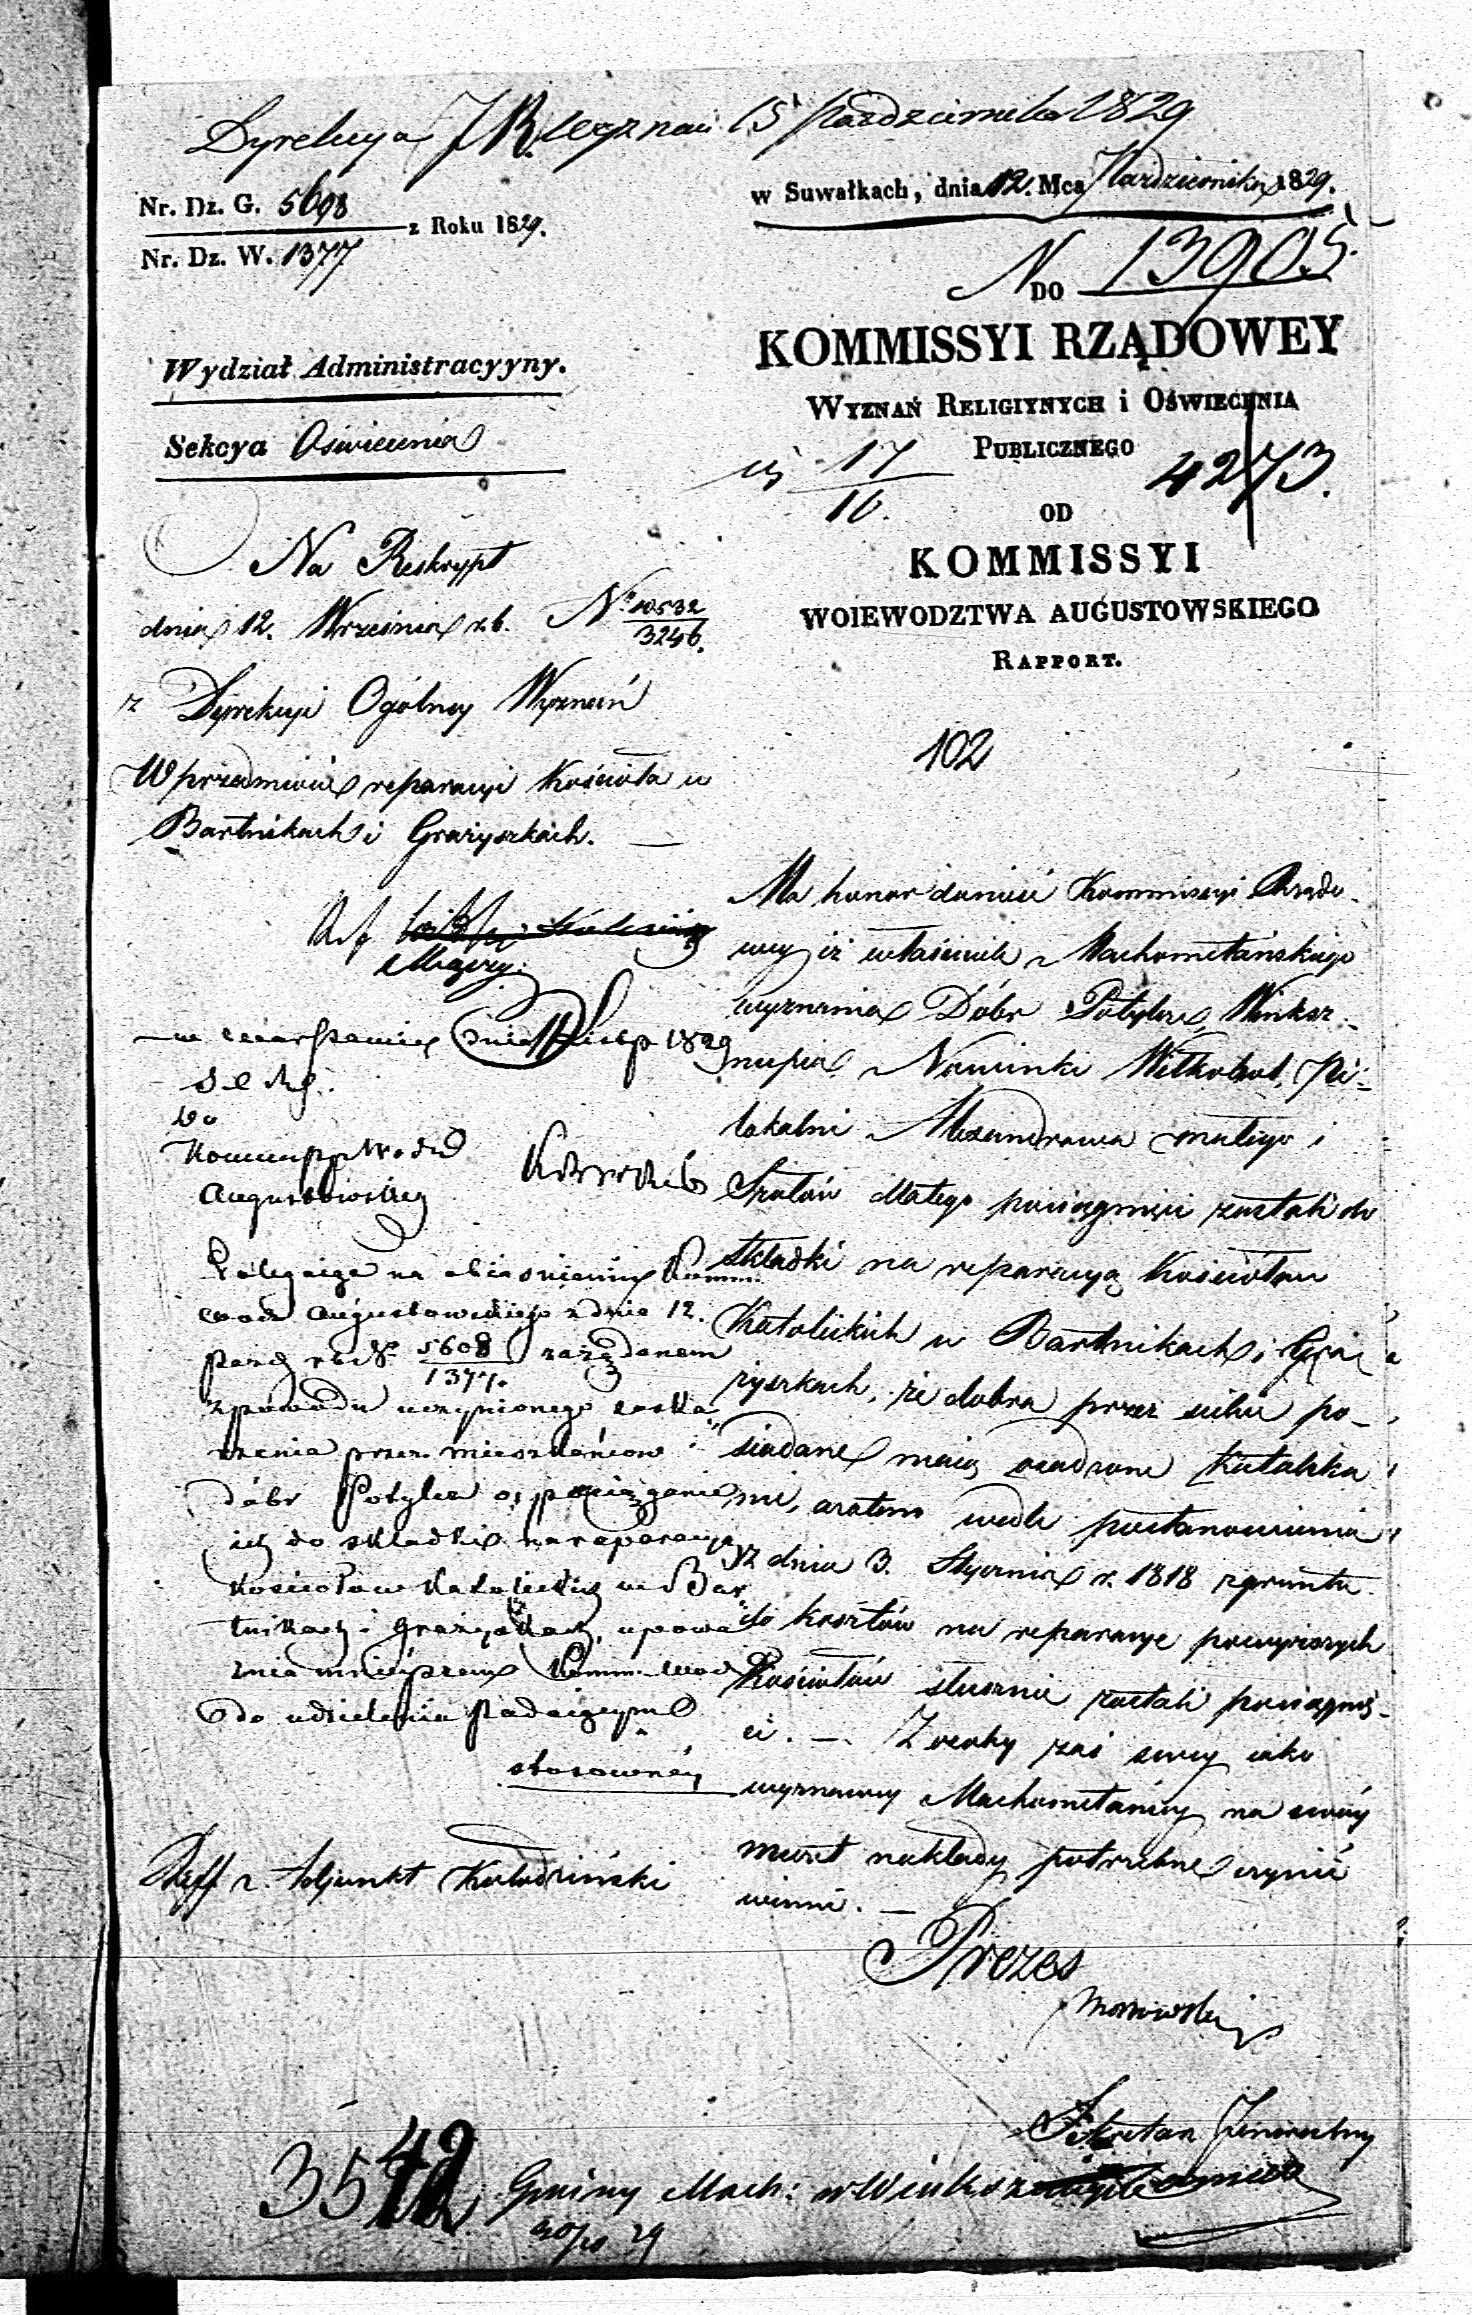 Dyrekcya J R. Wyznań 15 Października 1829
Nr. Dz. G. 5698
z Roku 1829.
Nr. Dz. W. 1377
w Suwałkach, dnia 12. Mca Października 1829.
N 13905.
DO
KOMMISSYI RZĄDOWEY
WYZNAŃ RELIGIYNYCH i OŚWIECENIA
PUBLICZNEGO
17
16.
4273.
OD
KOMMISSYI
WOIEWODZTWA AUGUSTOWSKIEGO
RAPPORT.
102
Wydział Administracyyny.
Sekcya Oświecenia
Na Reskrypt
dnia 12. Września r.b. No 10532
3246.
z Dyrekcyi Ogólney Wyznań
W przedmiocie reparacyi Kościoła w
Bartnikach i Grażyszkach.
w Warszawie dnia 1829
Do
Augustowskiey
na obiaśnienie Komm.
Augustowskiego z dnia 12.
Paźd. rb No 5608
1377.
z powodu uczynionego zaska
rżenia przez mieszkańców
dóbr Potylce o pociąganie
ich do składki na reparacye
Kościołów Katolickich w Bar
tnikach i Grażyszkach, upowa
żnia ninieyszem Komm. Woj
do udzielenia
stosowney
Reff r. Adjunkt Kołodziński
Ma honor donieść Kommissyi Rządo-
wey iż właściciele Machometańskiego
wyznania Dóbr Potylce, Winksz-
nupie Nowinki Wilkobol, Pi-
lokalni Alexandrowa małego i
dlatego pociągnięci zostali do
składki na reparacyą Kościołów
Katolickich w Bartnikach i Gra
żyszkach, że dobra przez siebie po-
siadane maią osadzone Katolika
mi, a zatem wedle postanowienia
z dnia 3. Stycznia r. 1818 z gruntu
do kosztów na reparacye powyższych
Kościołów słusznie zostali pociągnię-
ci. — Z osoby zaś swey iako
wyznawcy Machometańscy na swóy
meczet nakłady potrzebne czynić
winni. —
Prezes
Sekretarz Jeneralny
35
42
Gminy Mach: w Winksz
30/10 29